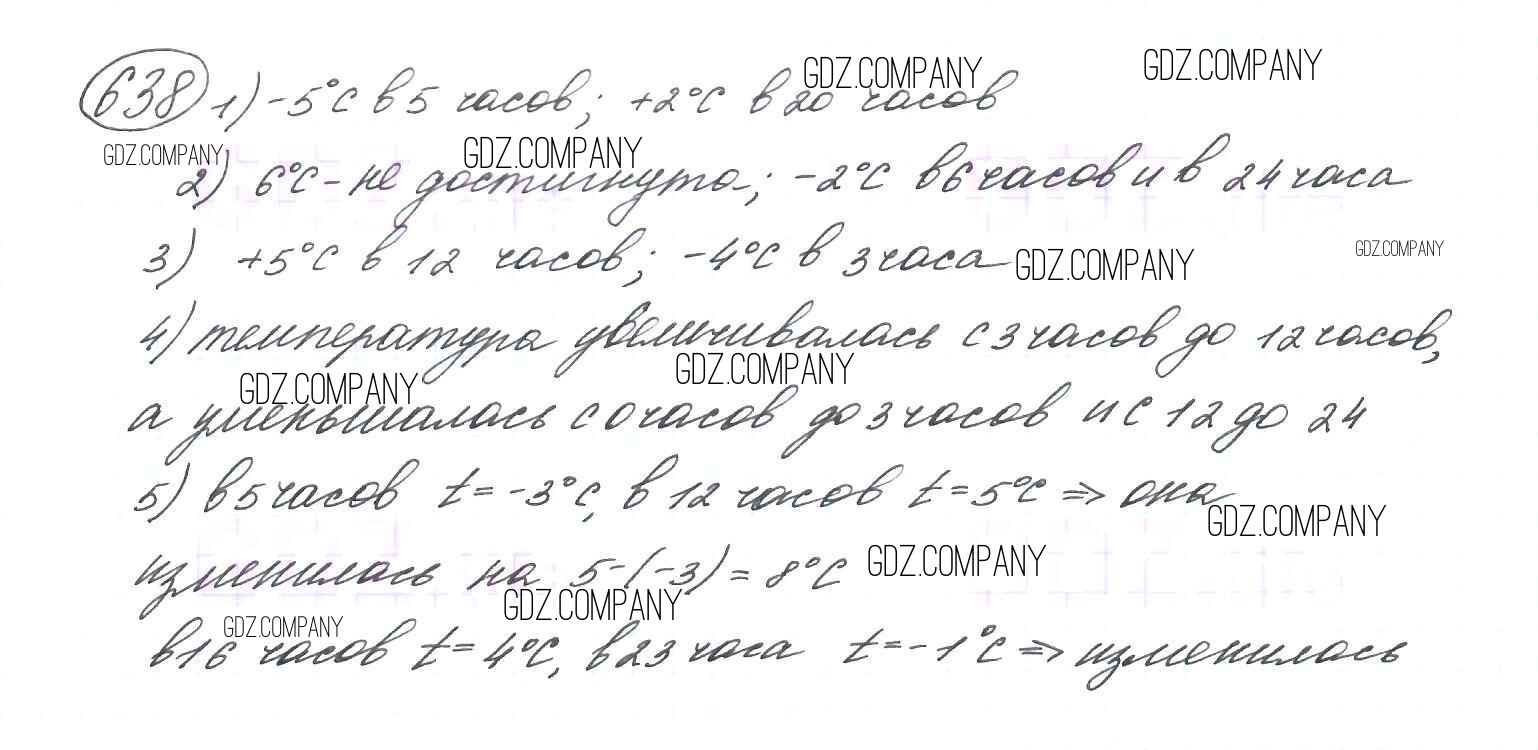 GDZ.COMPANY GDZ.COMPANY
638 1) -5°C в 5 часов; +2°C в 20 часов
GDZ.COMPANY GDZ.COMPANY
2) 6°C - не достигнута; -2°C в 6 часов и в 24 часа
3) +5°C в 12 часов; -4°C в 3 часа GDZ.COMPANY GDZ.COMPANY
4) температура увеличивалась с 3 часов до 12 часов,
GDZ.COMPANY GDZ.COMPANY
а уменьшалась с 0 часов до 3 часов и с 12 до 24
5) в 5 часов t = -3°C, в 12 часов t = 5°C => она
GDZ.COMPANY
изменилась на 5-(-3) = 8°C GDZ.COMPANY
GDZ.COMPANY GDZ.COMPANY
в 16 часов t = 4°C, в 23 часа t = -1°C => изменилась